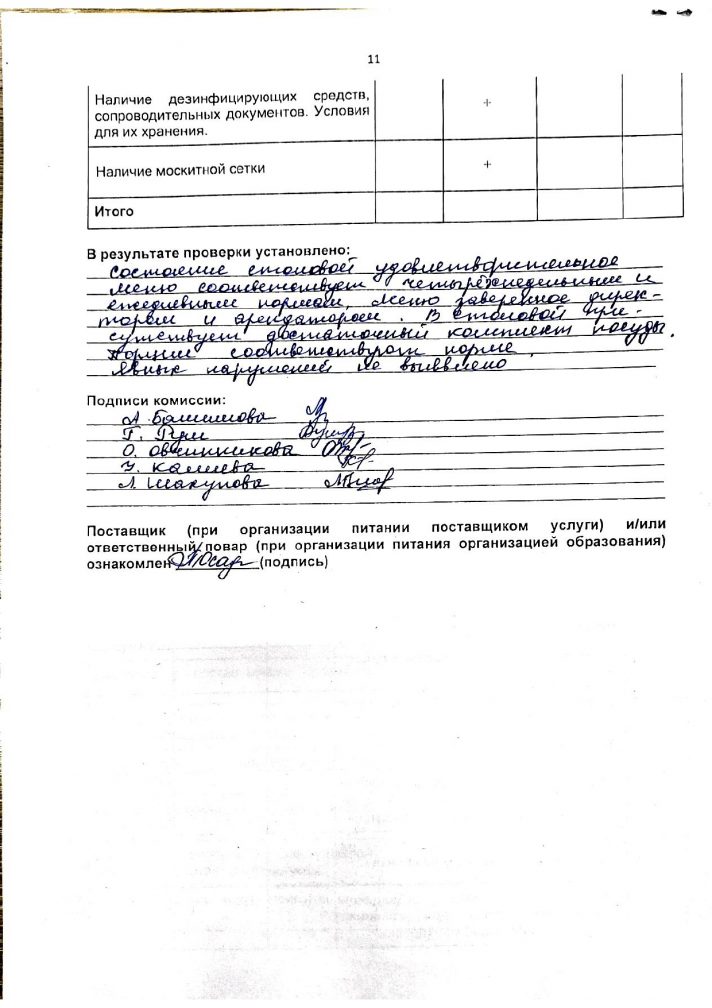 11
Наличие дезинфицирующих средств,
сопроводительных документов. Условия
для их хранения.
+
Наличие москитной сетки
+
Итого
В результате проверки установлено:
состояние столовой удовлетворительное
меню соответствует четырёхнедельным и
ежедневным нормам, меню заверенное дирек-
тором и арендатором. В столовой при-
сутствует достаточный комплект посуды.
Порции соответствуют норме.
Явных нарушений не выявлено
Подписи комиссии:
А. Балишова
Г.
О. Овчинникова
Л. Шакупова
Поставщик (при организации питании поставщиком услуги) и/или
ответственный повар (при организации питания организацией образования)
ознакомлен (подпись)